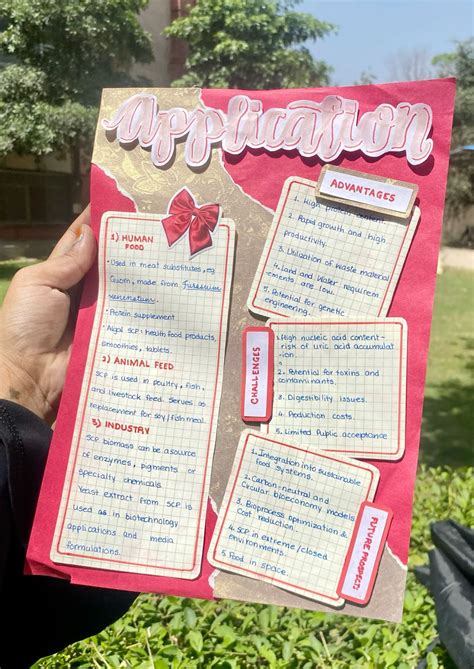 Application
1) HUMAN
FOOD
• Used in meat substitutes, eg
Quorn, made from Fusarium
venenatum.
• Protein supplement
• Algal SCP: health food products,
smoothies, tablets.
2) ANIMAL FEED
SCP is used in poultry, fish,
and livestock feed. Serves as
replacement for soy/fishmeal.
3) INDUSTRY
SCP biomass can be a source
of enzymes, pigments or
specialty chemicals.
Yeast extract from SCP is
used as in biotechnology
applications and media
formulations.
ADVANTAGES
1. High protein content
2. Rapid growth and high
productivity.
3. Utilization of waste material
4. Land and Water requirem
ents are low.
5. Potential for genetic
engineering.
CHALLENGES
1. High nucleic acid content-
risk of uric acid accumulat
-ion
2. Potential for toxins and
contaminants.
3. Digestibility issues.
4. Production costs.
5. Limited Public acceptance
1. Integration into sustainable
food systems.
2. Carbon-neutral and
Circular bioeconomy models
3. Bioprocess optimization &
Cost reduction
4. SCP in extreme/closed
environments.
5. Food in space.
FUTURE PROSPECT: